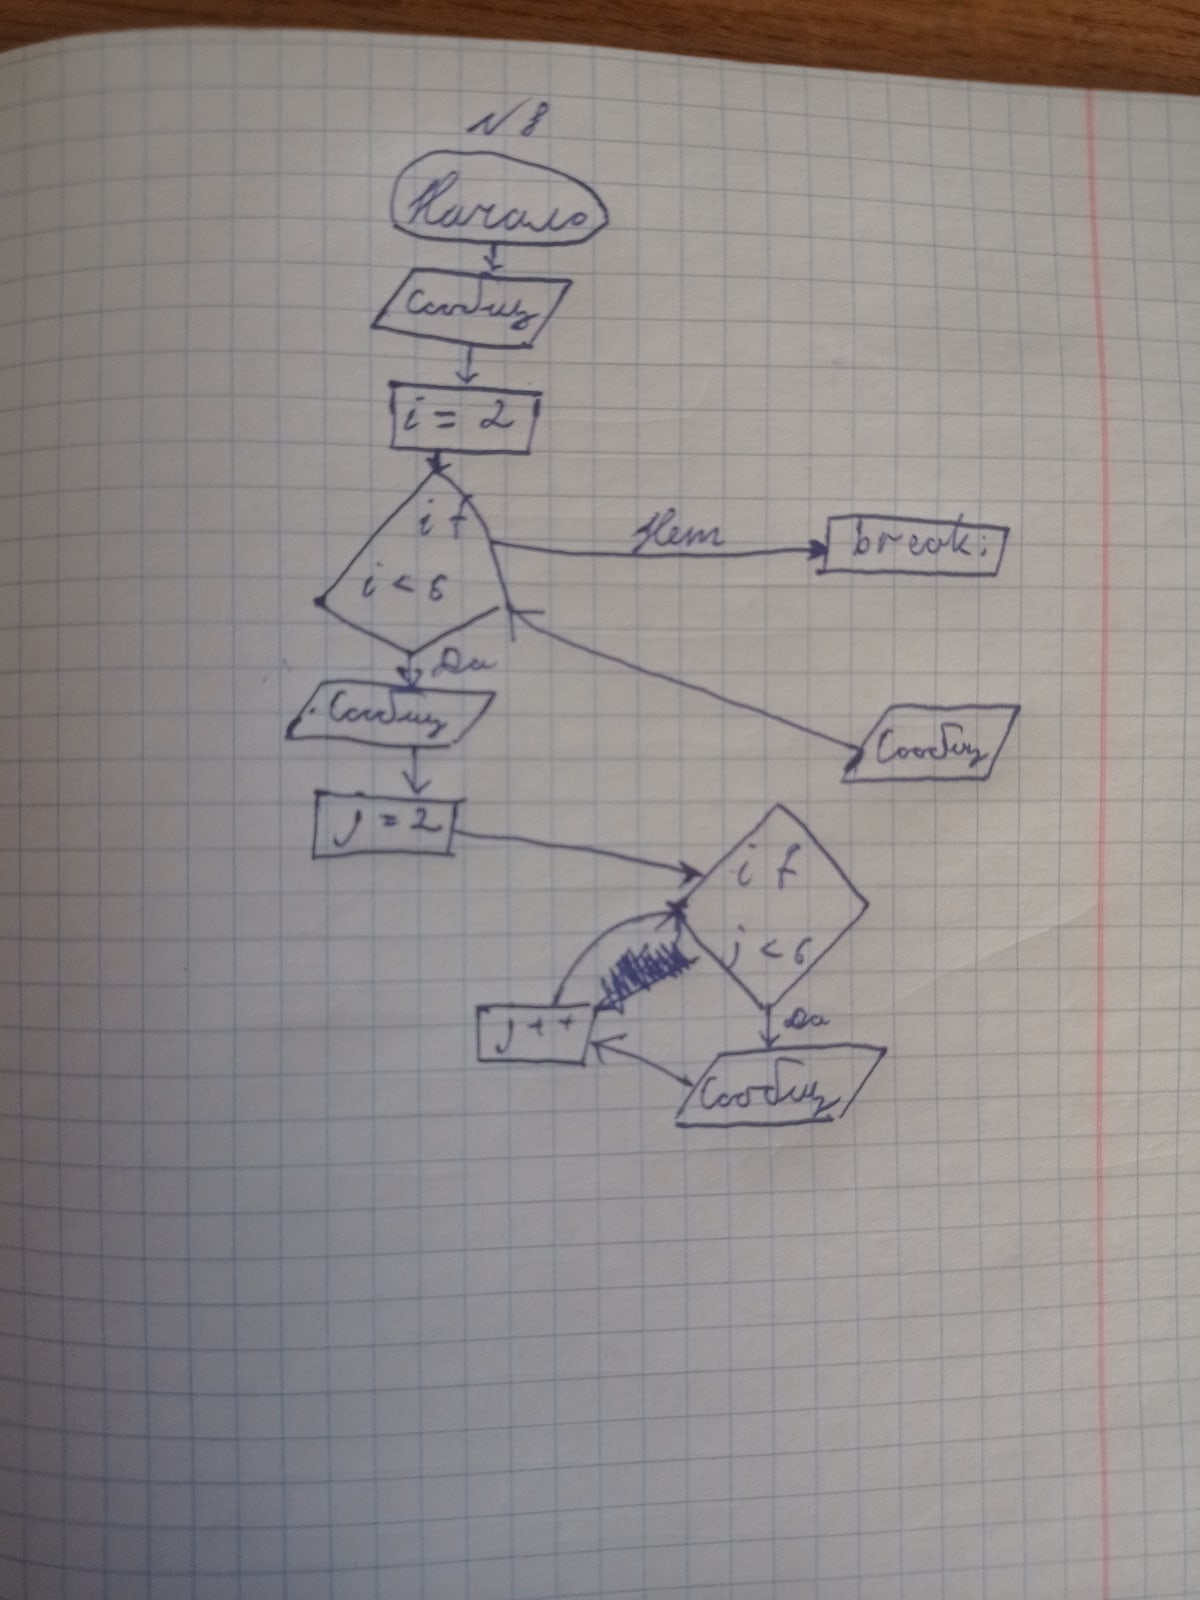 № 8
Начало
Сообщ
i = 2
if
i < 6
Нет
break;
Да
Сообщ
Сообщ
j = 2
if
j < 6
j++
Да
Сообщ